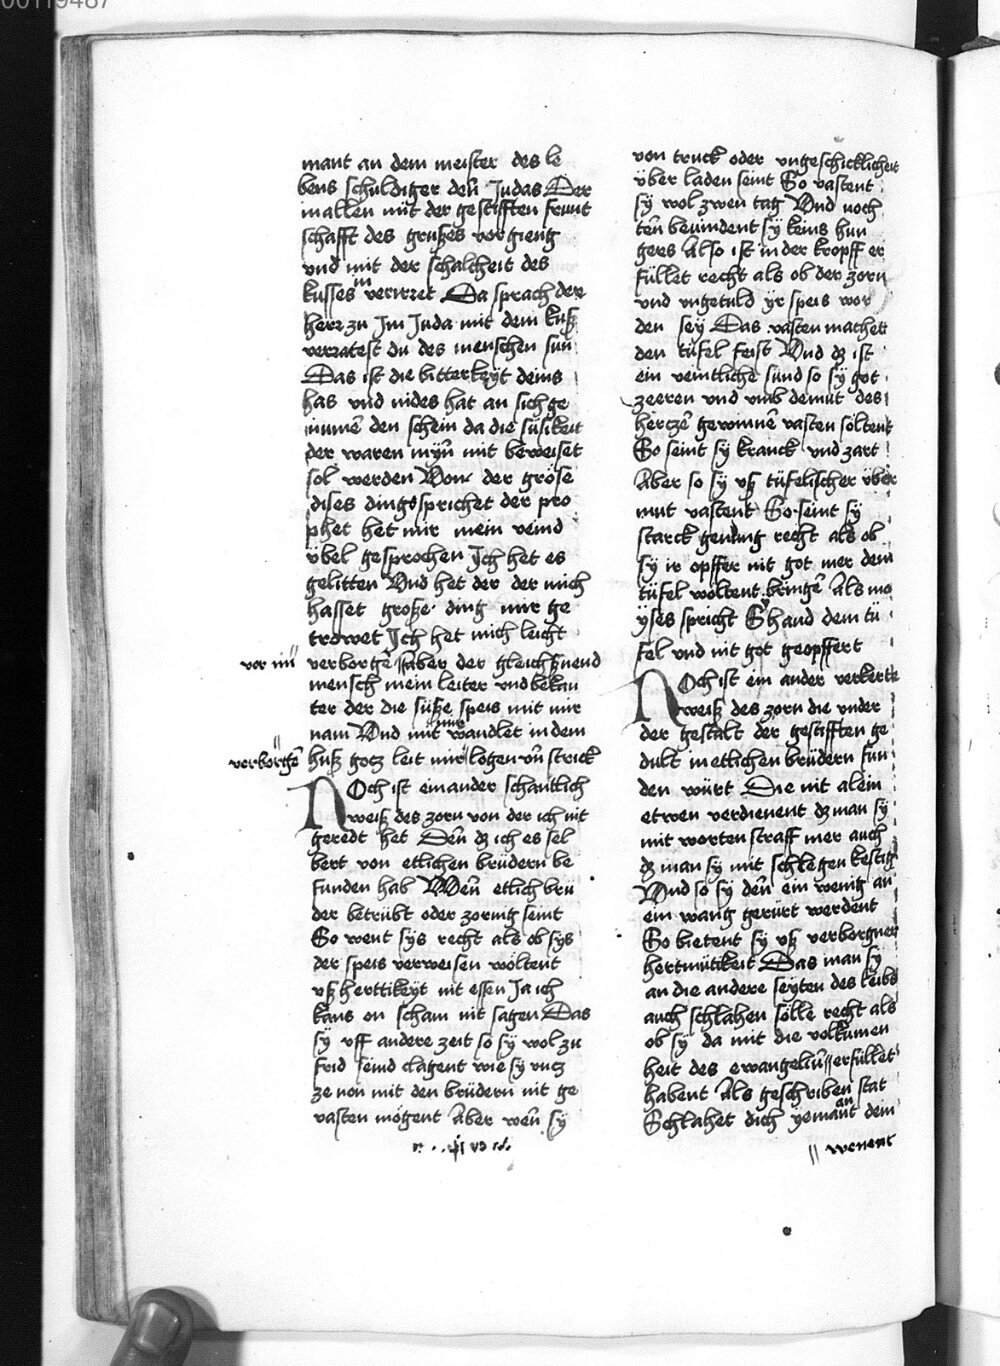 00119487
mant an dem meister des le
bens schuldiger deñ Judas Der
in allen mit der gestifften frunt
schafft des grußes vor gieng
vnd mit der schalcheit des
kusses in verirret Da sprach der
herr zu Im Juda mit dem kuß
verratest du des menschen sun
Das ist die bitterkeyt deins
has vnd nides hat an sich ge
numē den schein da die süsikeit
der waren myñ mit beweiset
sol werden Von der gröse
dises dings sprichet der pro
phet het mir mein veind
v̈bel gesprochen Ich het es
gelitten Vnd het der der mich
hasset große ding mir ge
trowet Ich het mich leicht
vor im
verborgē Aber der gleichßnend
mensch mein leiter vnd bekan
ter der die süße speis mit mir
nam Vnd mit mir wandlet in dem
verborgē
huß gotz leit mir logen vñ strick
Noch ist ein ander schantlich
weiß des zorn von der ich nit
geredt het Deñ dz ich es sel
bert von etlichen brüdern be
funden hab Weñ etlich brü
der betrübt oder zornig seint
So went sys recht als ob sys
der speis verweisen wöltent
vß herttikeyt nit essen Ja ich
kans on scham nit sagen Das
sy vff andere zeit so sy wol zu
frid seind clagent wie sy vntz
ze non mit den brüdern nit ge
vasten mögent Aber weñ sy
von truck oder vngeschicklicheit
v̈ber laden seint So vastent
sy wol zwen tag Vnd noch
ten bevindent sy keins hun
gers Also ist in der kropff er
füllet recht als ob der zorn
vnd vngetuld yr speis wor
den sey Das vasten machett
den tüfel feist Vnd dz ist
ein veintliche sund so sy got
zeeren vnd vmb demut des
hertzē gewinnē vasten söltent
So seint sy kranck vnd zart
Aber so sy vß tüfelischer v̈ber
mut vastent So seint sy
starck genung recht als ob
sy ir opffer nit got mer dem
tüfel wöltent bringē Als mo
yses spricht Sy hand dem tü
fel vnd nit got geopffert
Noch ist ein ander verkerte
weiß des zorn die vnder
der gestalt der gestifften ge
dult in etlichen brüdern fun
den würt Die nit alein
etwen verdienent dz man sy
mit worten straff mer auch
dz man sy mit schlegen kestig
Vnd so sy deñ ein wenig an
ein wang gerürt werdent
So bietent sy vß verborgner
hertmütikeit Das man sy
an die andere seyten des leibs
auch schlahen sölle recht als
ob sy da mit die volkumen
heit des ewangeliū erfüllet
habent Als geschriben stat
Schlahet dich yemant an dem
wenent